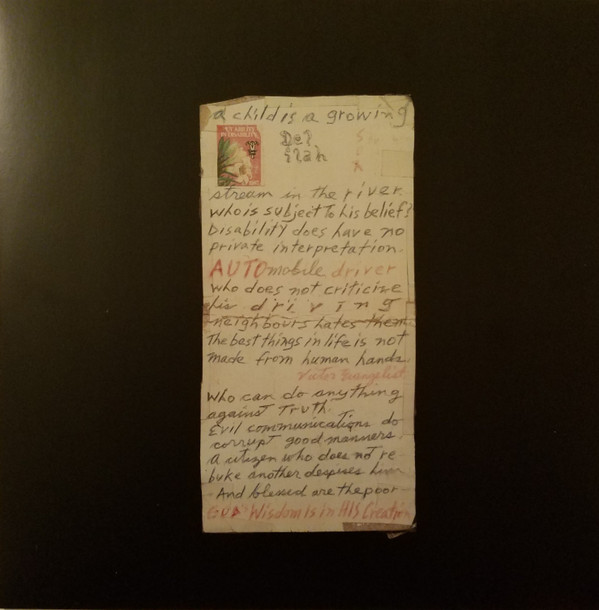 a child is a growing
Del
ilah
stream in the river
who is subject to his belief?
Disability does have no
private interpretation.
AUTOmobile driver
who does not criticize
his driving
neighbours hates them
The best things in life is not
made from human hands
Victor Evangelist
Who can do anything
against Truth.
Evil communications do
corrupt good manners
A citizen who does not re
buke another despises him
And blessed are the poor
GOD's Wisdom Is in HIS Creation